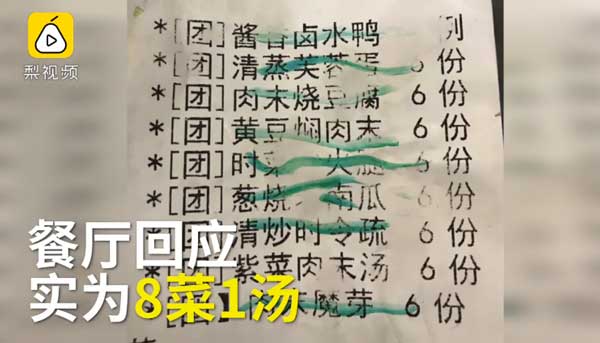 梨视频
*[团]酱香卤水鸭 例
*[团]清蒸芙蓉蛋 6份
*[团]肉末烧豆腐 6份
*[团]黄豆焖肉末 6份
*[团]时菜 火腿 6份
*[团]葱烧 南瓜 6份
*[团]清炒时令疏 6份
*[团]紫菜肉末汤 6份
*[团] 魔芽 6份
餐厅回应
实为8菜1汤